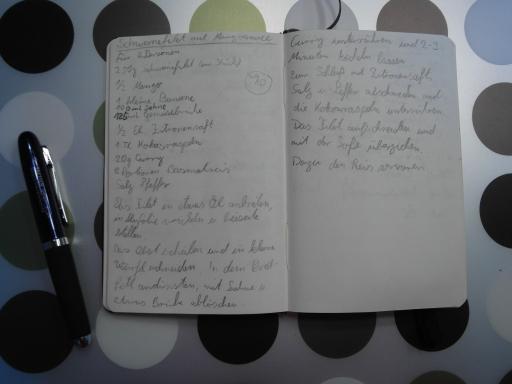 Schweinefilet mit Mangosauce
Für 2 Personen
250g Schweinefilet (am Stück)
½ Mango
1 kleine Banane
100 ml Sahne
125 ml Gemüsebrühe
½ El. Zitronensaft
1 TL Kokosraspeln
20g Curry
2 Portionen Basmatireis
Salz Pfeffer
Das Filet in etwas Öl anbraten,
in Alufolie wickeln u. beiseite
stellen
Das Obst schälen und in kleine
Würfel schneiden. In dem Brat-
fett andünsten, mit Sahne u.
etwas Brühe ablöschen.
Curry unterrühren und 2-3
Minuten köcheln lassen
Zum Schluß mit Zitronensaft,
Salz u. Pfeffer abschmecken und
die Kokosraspeln unterrühren
Das Filet aufschneiden und
mit der Soße überziehen.
Dazu den Reis servieren